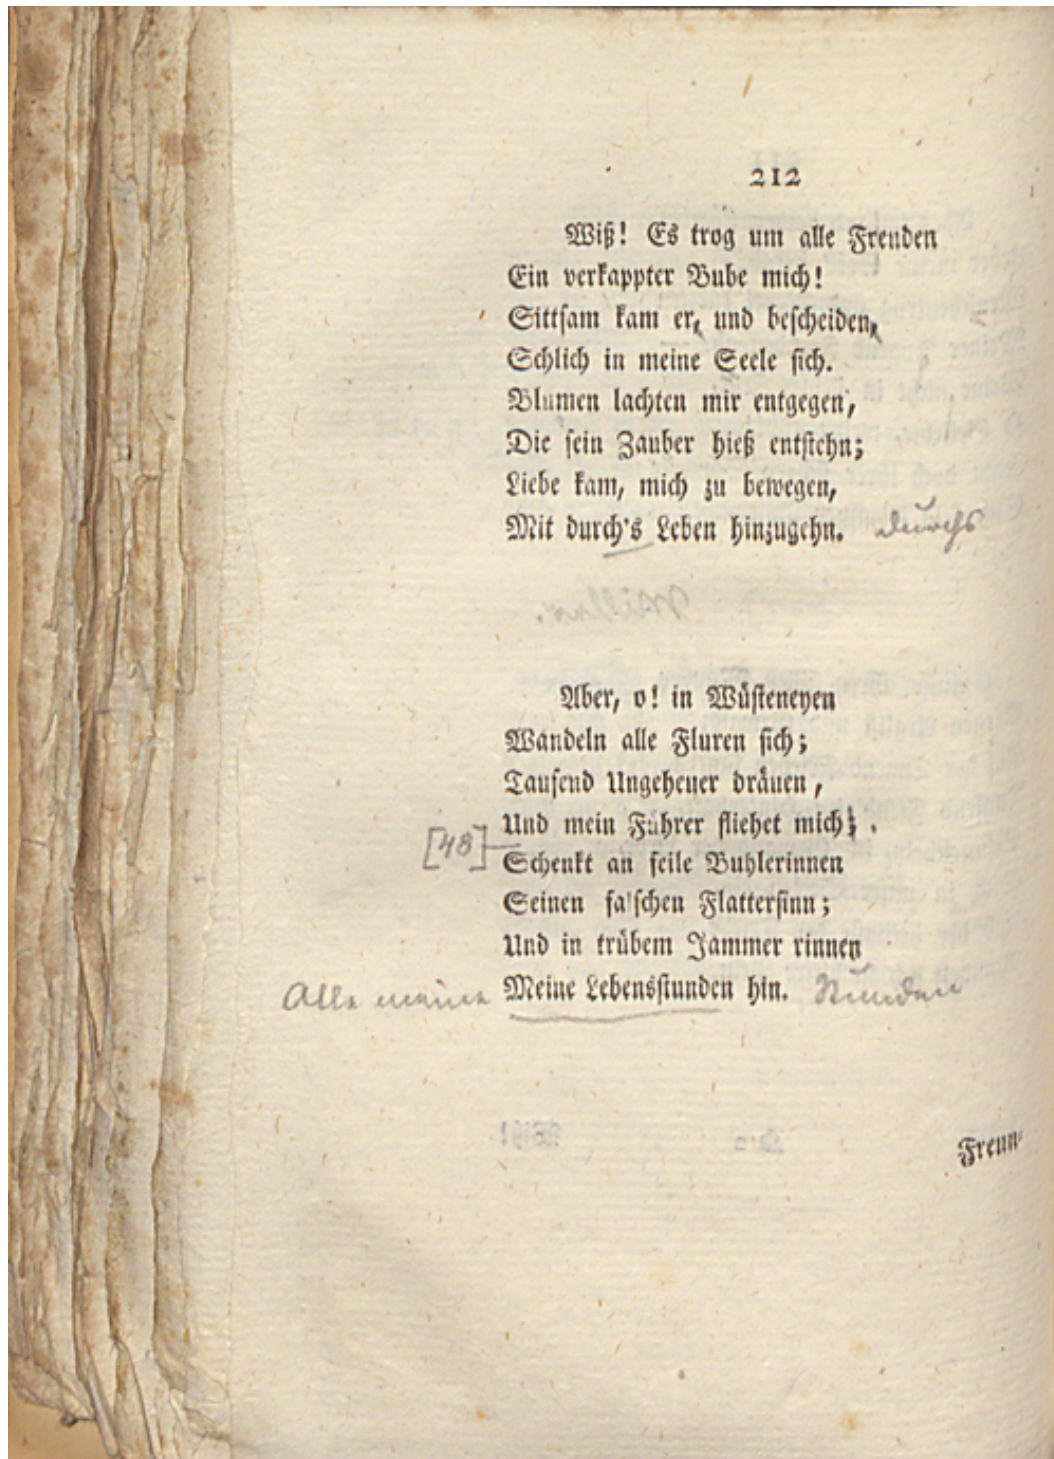 212
Wiß! Es trog um alle Freuden
Ein verkappter Bube mich!
Sittsam kam er, und bescheiden,
Schlich in meine Seele sich.
Blumen lachten mir entgegen,
Die sein Zauber hieß entstehn;
Liebe kam, mich zu bewegen,
Mit durch's Leben hinzugehn. durchs
Aber, o! in Wüsteneyen
Wandeln alle Fluren sich;
Tausend Ungeheuer dräuen,
Und mein Führer fliehet mich; .
[48]
Schenkt an feile Buhlerinnen
Seinen falschen Flattersinn;
Und in trübem Jammer rinnen
Alle meine Meine Lebensstunden hin. Stunden
Freun-